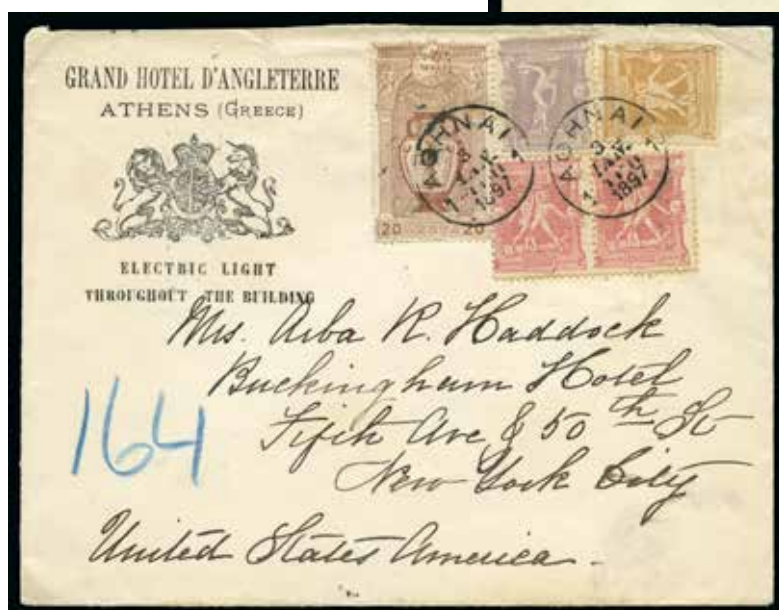 GRAND HOTEL D'ANGLETERRE
ATHENS (GREECE)
ELECTRIC LIGHT
THROUGHOUT THE BUILDING
20 20
ΑΘΗΝΑΙ 1
3
ΙΑΝ.
1897
1
ΑΘΗΝΑΙ 1
3
ΙΑΝ.
1897
1
Mrs. Arba R. Haddock
Buckingham Hotel
Fifth Ave & 50th St
New York City
United States America.
164